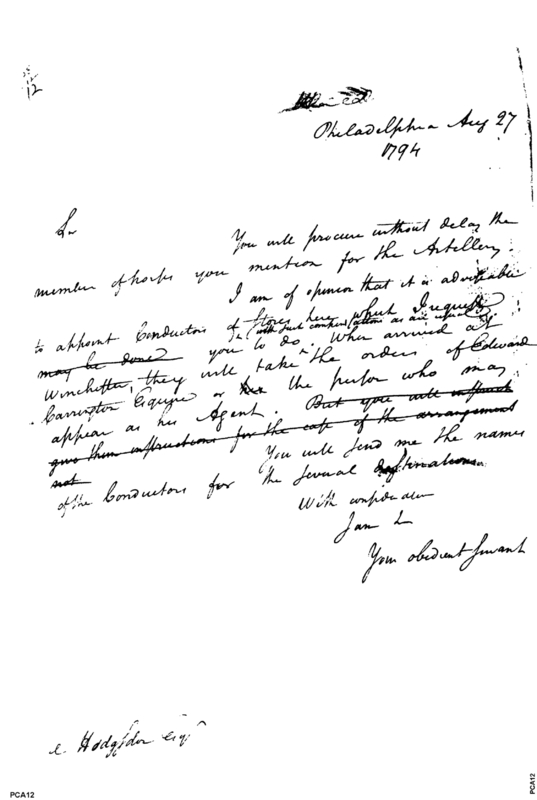 Philadelphia Aug 27
1794
Sir
You will procure without delay the
number of horses you mention for the Artillery.
I am of opinion that it is adviseable
to appoint Conductors of Stores here which I request
with such compensations as are usual
may be done you to do. When arrived at
Winchester, they will take the orders of Edward
Carrington Esquire or the person who may
appear as his Agent. But you will
give them instructions for the case of the arrangement
not
You will send me the names
of the Conductors for the several destinations
With consideration
I am Sir
Your obedient Servant
Hodgsdon Esqr
PCA12
PCA12